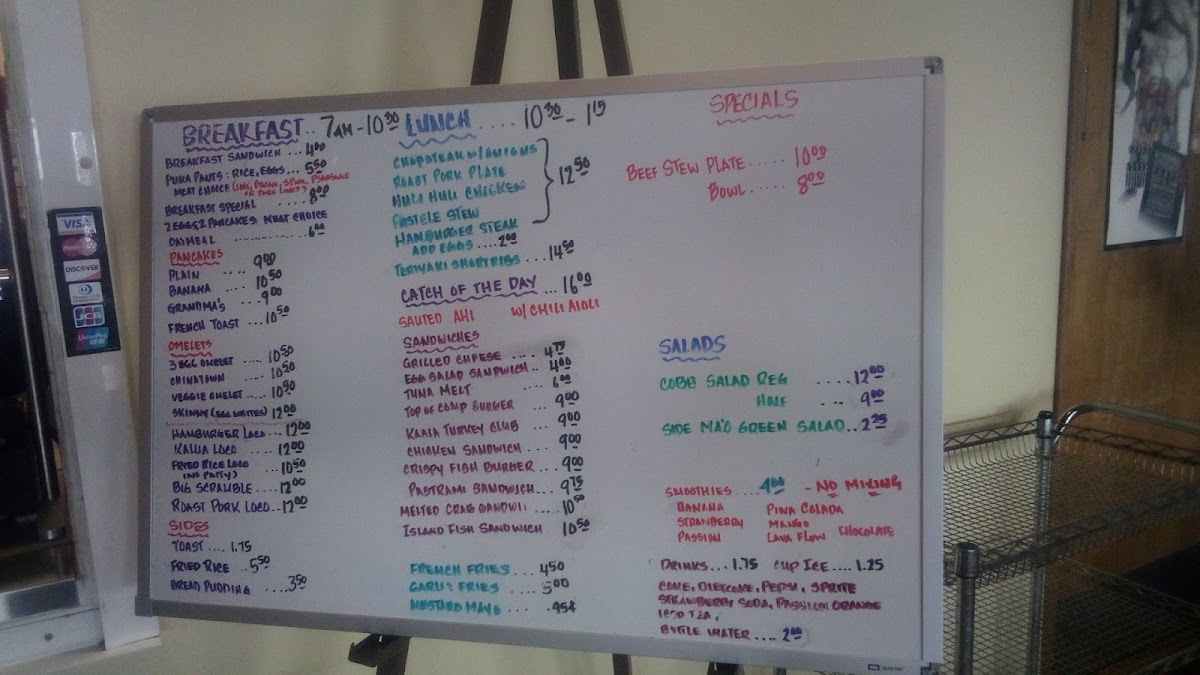 BREAKFAST.. 7AM-10:30
BREAKFAST SANDWICH ... 4.00
PUKA PANTS: RICE, EGGS... 5.50
MEAT CHOICE
BREAKFAST SPECIAL ..... 8.00
2 EGGS, 2 PANCAKES MEAT CHOICE
OATMEAL ............ 6.00
PANCAKES
PLAIN .... 9.00
BANANA .... 10.50
GRANDMA'S ... 9.00
FRENCH TOAST ... 10.50
OMELETS
3 EGG OMELET .... 10.50
CHINATOWN .... 10.50
VEGGIE OMELET .... 10.50
SKINNY (EGG WHITES) 12.00
HAMBURGER LOCO.. 12.00
KALUA LOCO .... 12.00
FRIED RICE LOCO ... 10.50
(NO PATTY)
BIG SCRAMBLE .... 12.00
ROAST PORK LOCO.. 12.00
SIDES
TOAST .... 1.75
FRIED RICE ... 5.50
BREAD PUDDING .... 3.50
LUNCH .... 10:30 - 1:15
CHOPSTEAK W/ONIONS
ROAST PORK PLATE
HULI HULI CHICKEN
PASTELE STEW
HAMBURGER STEAK
12.50
ADD EGGS .... 2.00
TERIYAKI SHORTRIBS ... 14.50
CATCH OF THE DAY ... 16.00
SAUTED AHI W/CHILI AIOLI
SANDWICHES
GRILLED CHEESE .... 4.75
EGG SALAD SANDWICH.. 4.00
TUNA MELT .... 6.00
TOP OF CAMP BURGER ... 9.00
KAALA TURKEY CLUB ... 9.00
CHICKEN SANDWICH .... 9.00
CRISPY FISH BURGER ... 9.00
PASTRAMI SANDWICH... 9.75
MELTED CRAB SANDWII .... 10.50
ISLAND FISH SANDWICH 10.50
FRENCH FRIES .... 4.50
GARLIC FRIES .... 5.00
MUSTARD MAYO ... .95¢
SPECIALS
BEEF STEW PLATE ..... 10.00
BOWL ..... 8.00
SALADS
COBB SALAD REG ..... 12.00
HALF .... 9.00
SIDE MA'O GREEN SALAD.. 2.25
SMOOTHIES .... 4.00 - NO MIXING
BANANA PINA COLADA
STRAWBERRY MANGO CHOCOLATE
PASSION LAVA FLOW
DRINKS... 1.75 CUP ICE.... 1.25
COKE, DIETCOKE, PEPSI, SPRITE
STRAWBERRY SODA, PASSION ORANGE
ICED TEA,
BOTTLE WATER .... 2.00
VISA
MasterCard
DISCOVER
Diners Club
JCB
UnionPay